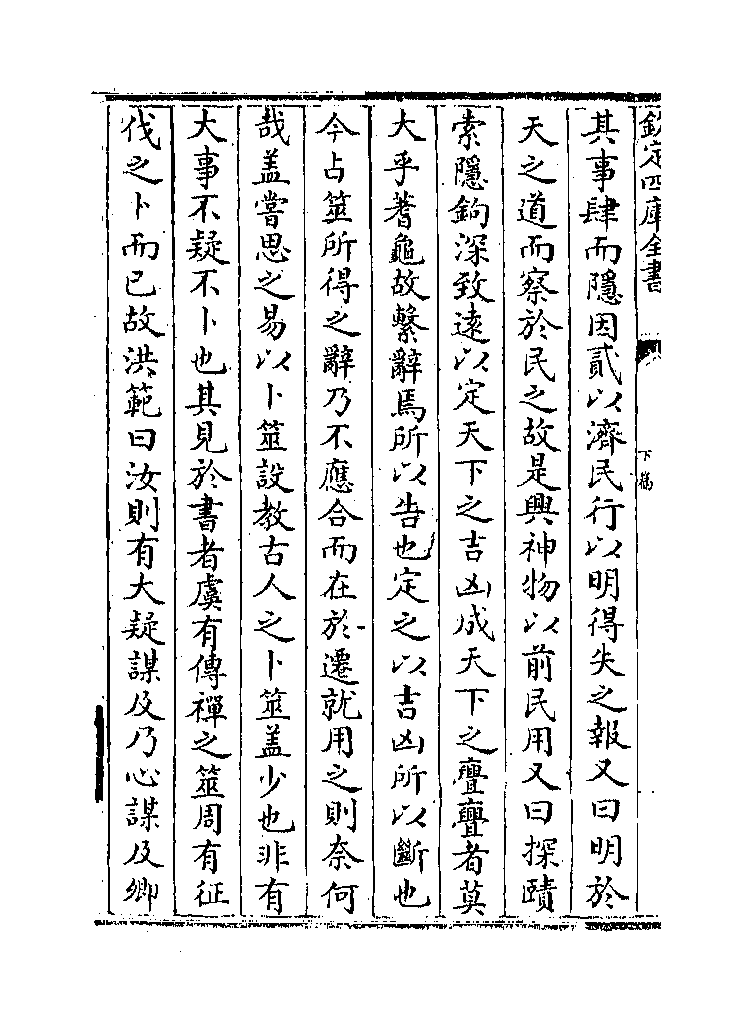 欽定四庫全書
下稿
其事肆而隱因貳以濟民行以明得失之報又曰明於
天之道而察於民之故是興神物以前民用又曰探賾
索隱鉤深致遠以定天下之吉凶成天下之亹亹者莫
大乎蓍龜故繫辭焉所以告也定之以吉凶所以斷也
今占筮所得之辭乃不應合而在於遷就用之則奈何
哉盖嘗思之易以卜筮設教古人之卜筮盖少也非有
大事不疑不卜也其見於書者虞有傳禪之筮周有征
伐之卜而已故洪範曰汝則有大疑謀及乃心謀及卿